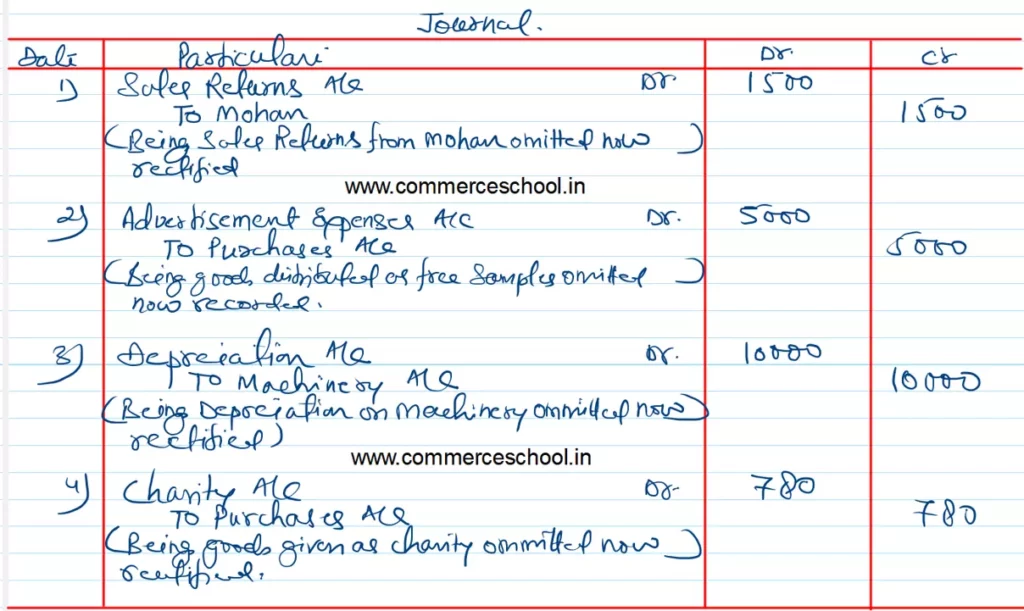 Journal.
Date Particulars Dr. Cr
1) Sales Returns A/c Dr. 1500
To Mohan 1500
(Being Sales Returns from Mohan omitted now
rectified )
www.commerceschool.in
2) Advertisement Expenses A/c Dr. 5000
To Purchases A/c 5000
(Being goods distributed as free Samples omitted )
now recorded.
3) Depreciation A/c Dr. 10000
To Machinery A/c 10000
(Being Depreciation on machinery ommitted now )
rectified)
www.commerceschool.in
4) Charity A/c Dr- 780
To Purchases A/c 780
(Being goods given as charity ommitted now )
rectified.